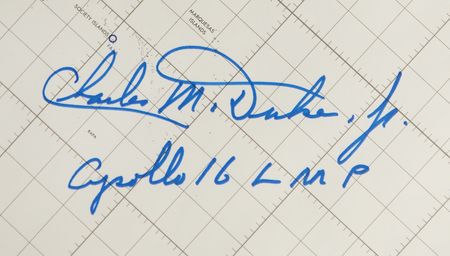 SOCIETY ISLANDS
MARQUESAS
ISLANDS
Charles M. Duke, Jr.
RAPA
Apollo 16 LMP